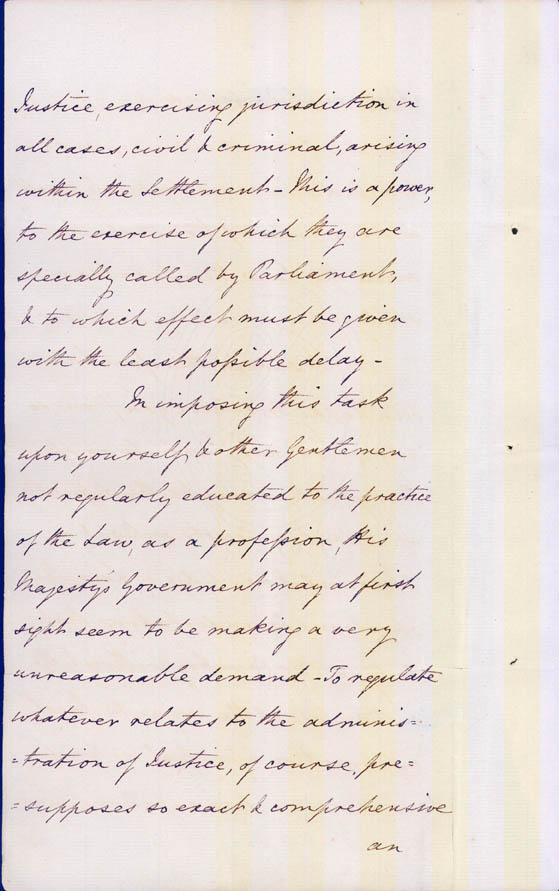 Justice, exercising jurisdiction in
all cases, civil & criminal, arising
within the Settlement - This is a power,
to the exercise of which they are
specially called by Parliament,
& to which effect must be given
with the least possible delay -
In imposing this task
upon yourself, & other Gentlemen
not regularly educated to the practice
of the Law, as a profession, His
Majesty's Government may at first
sight seem to be making a very
unreasonable demand - To regulate
whatever relates to the adminis=
=tration of Justice, of course, pre=
=supposes so exact & comprehensive
an